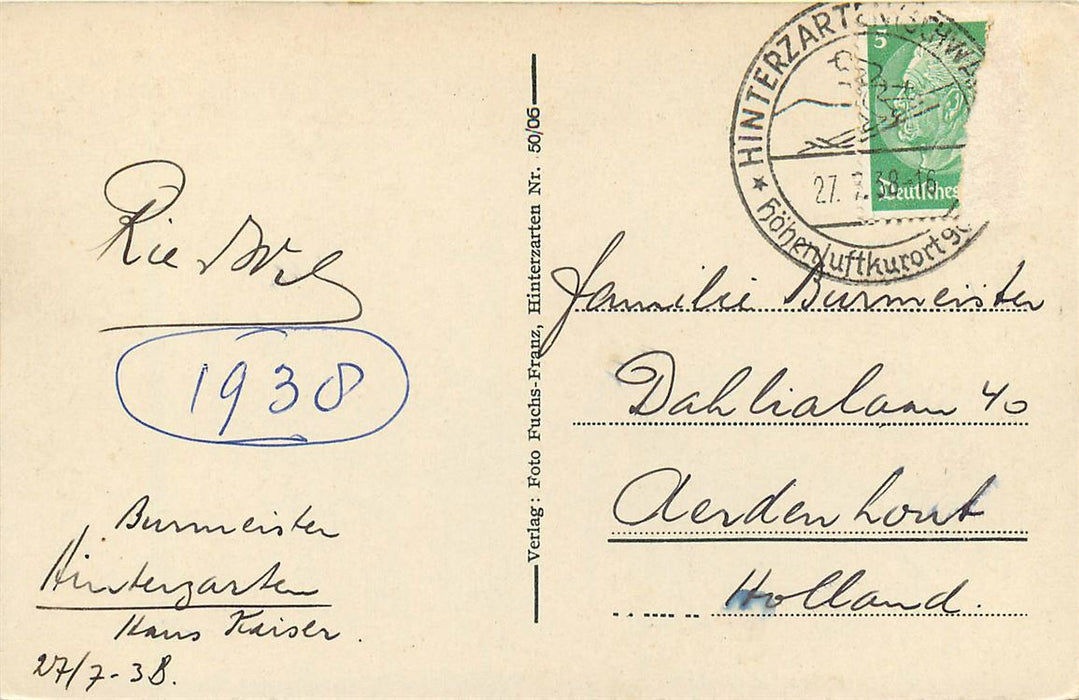 Rie
1938
Burmeister
Hinterzarten
Haus Kaiser.
27/7-38.
Verlag: Foto Fuchs-Franz, Hinterzarten Nr. 50/06
HINTERZARTEN (SCHWA
27. 7. 38.-16
★ höhenluftkurort 90
5
Deutsches
Familie Burmeister
Dahlialaan 40
Aerdenhout
Holland.